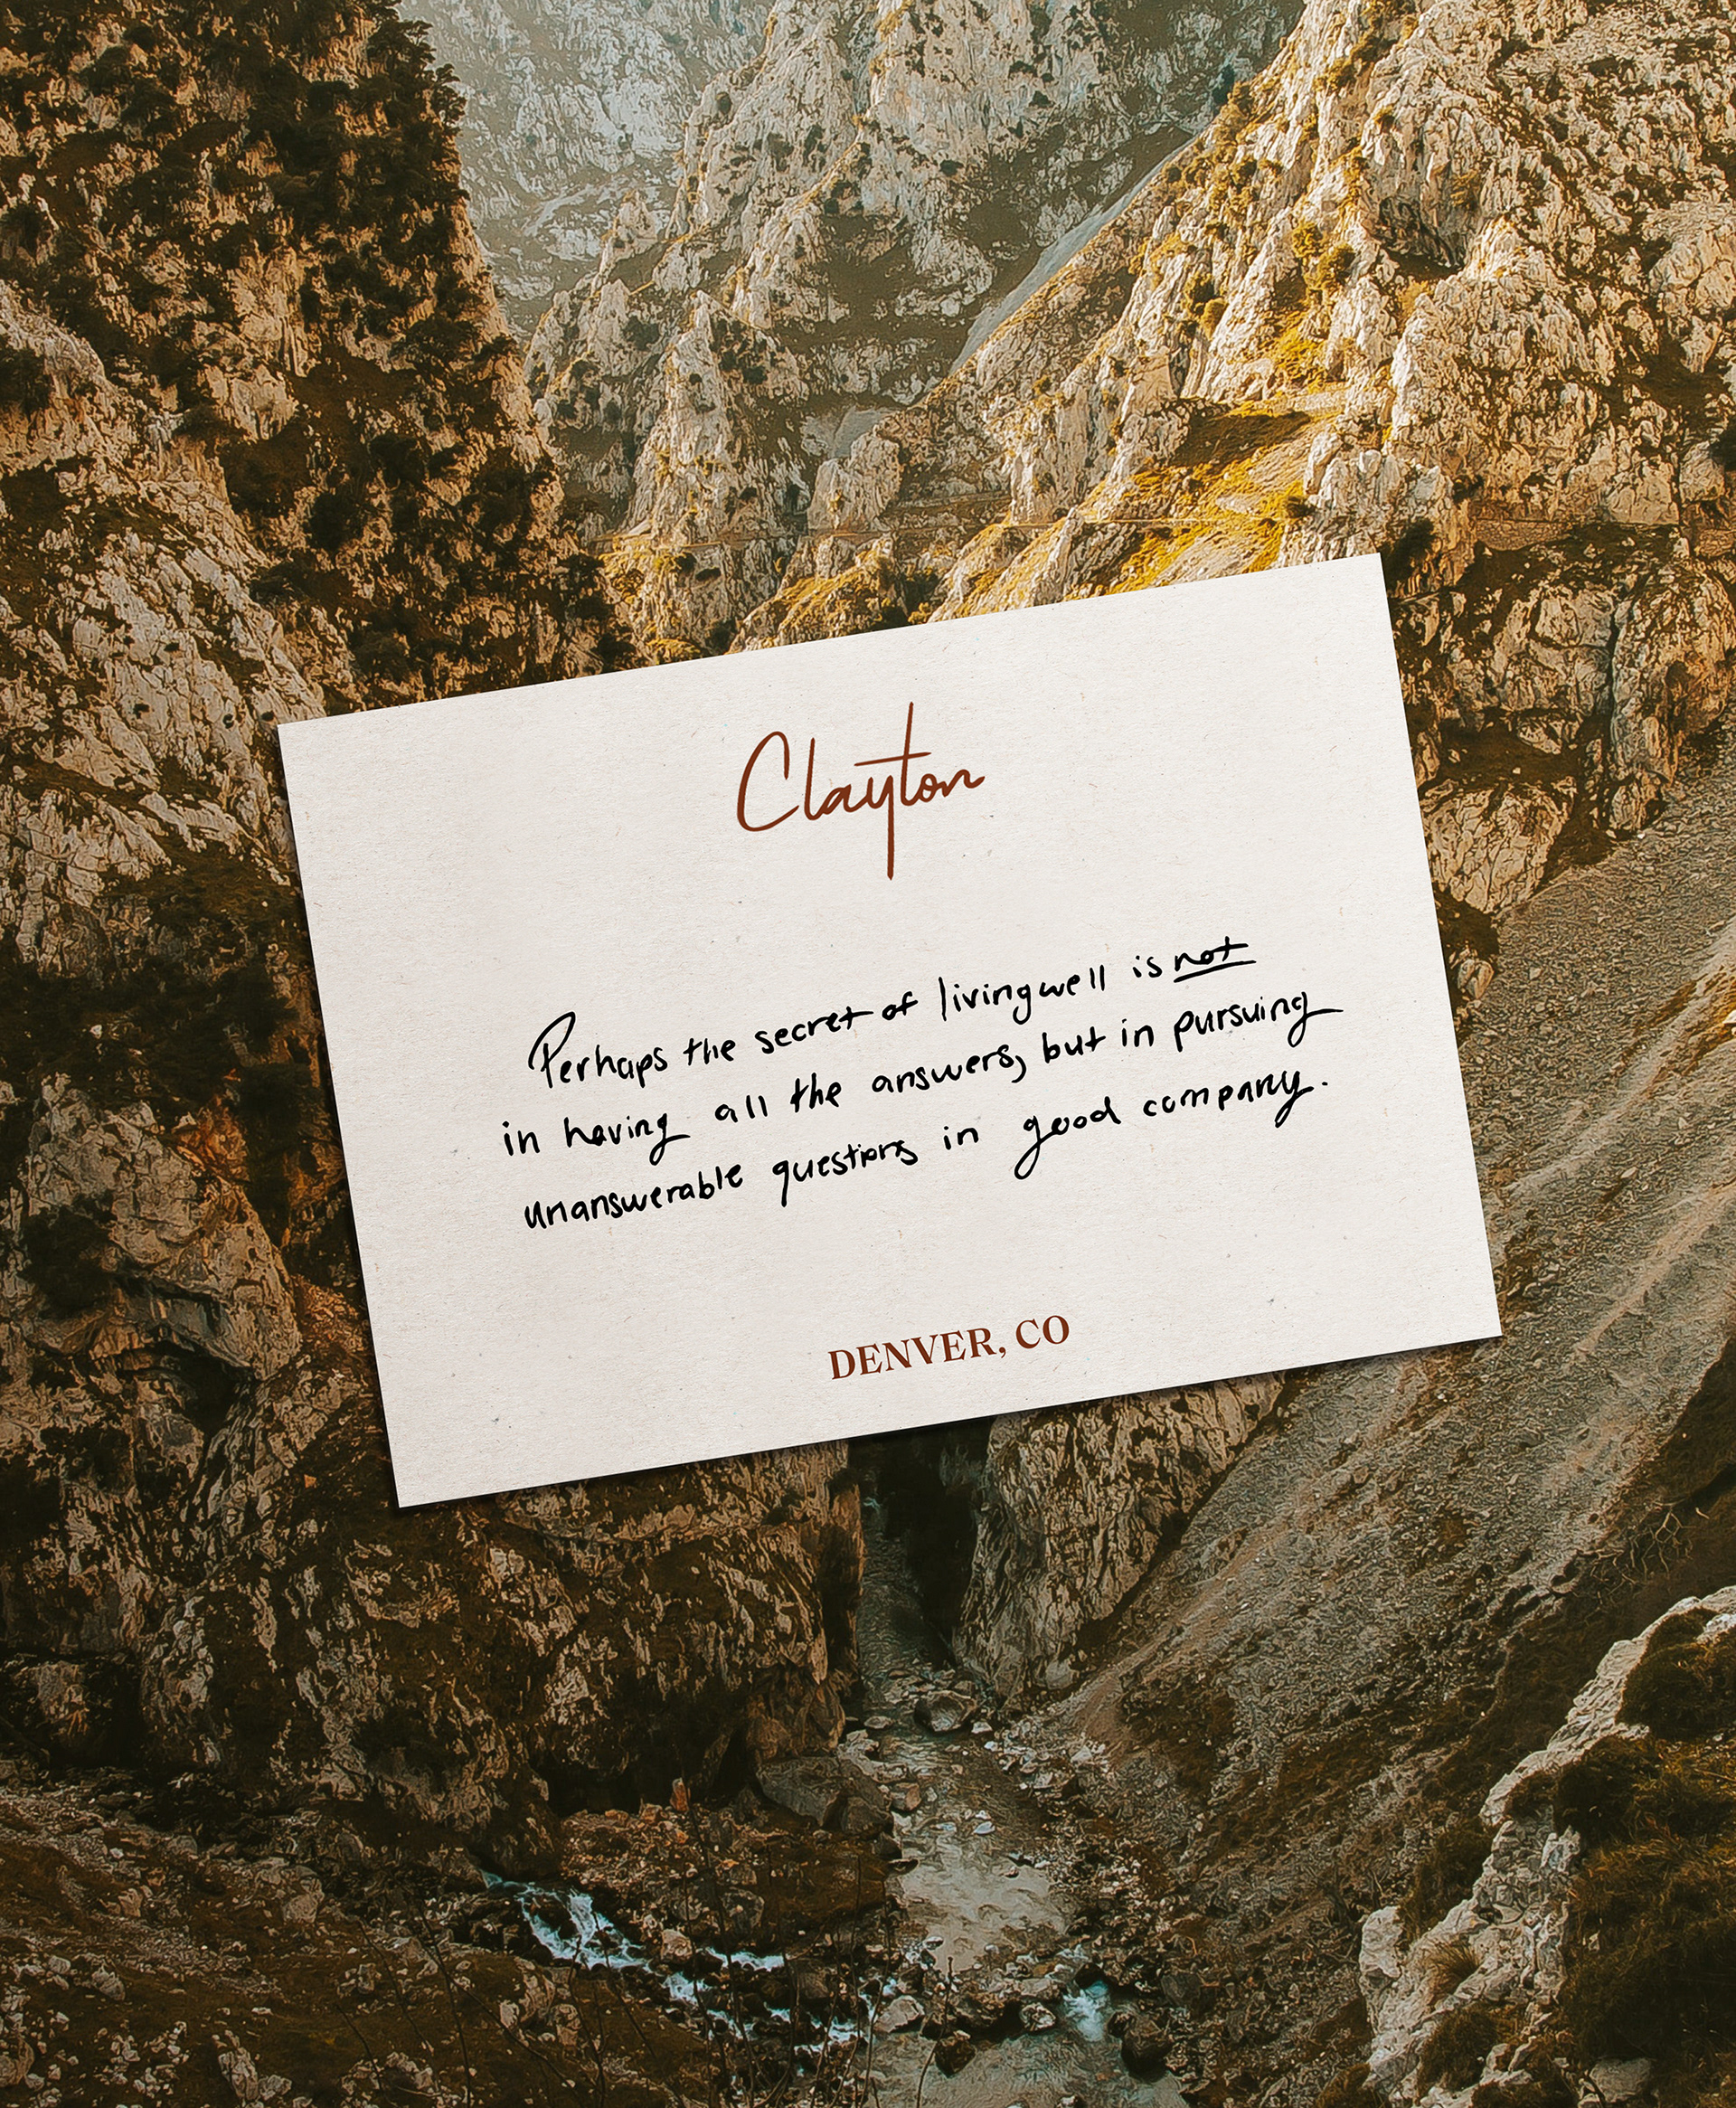 Clayton
Perhaps the secret of living well is not
in having all the answers, but in pursuing
unanswerable questions in good company.
DENVER, CO